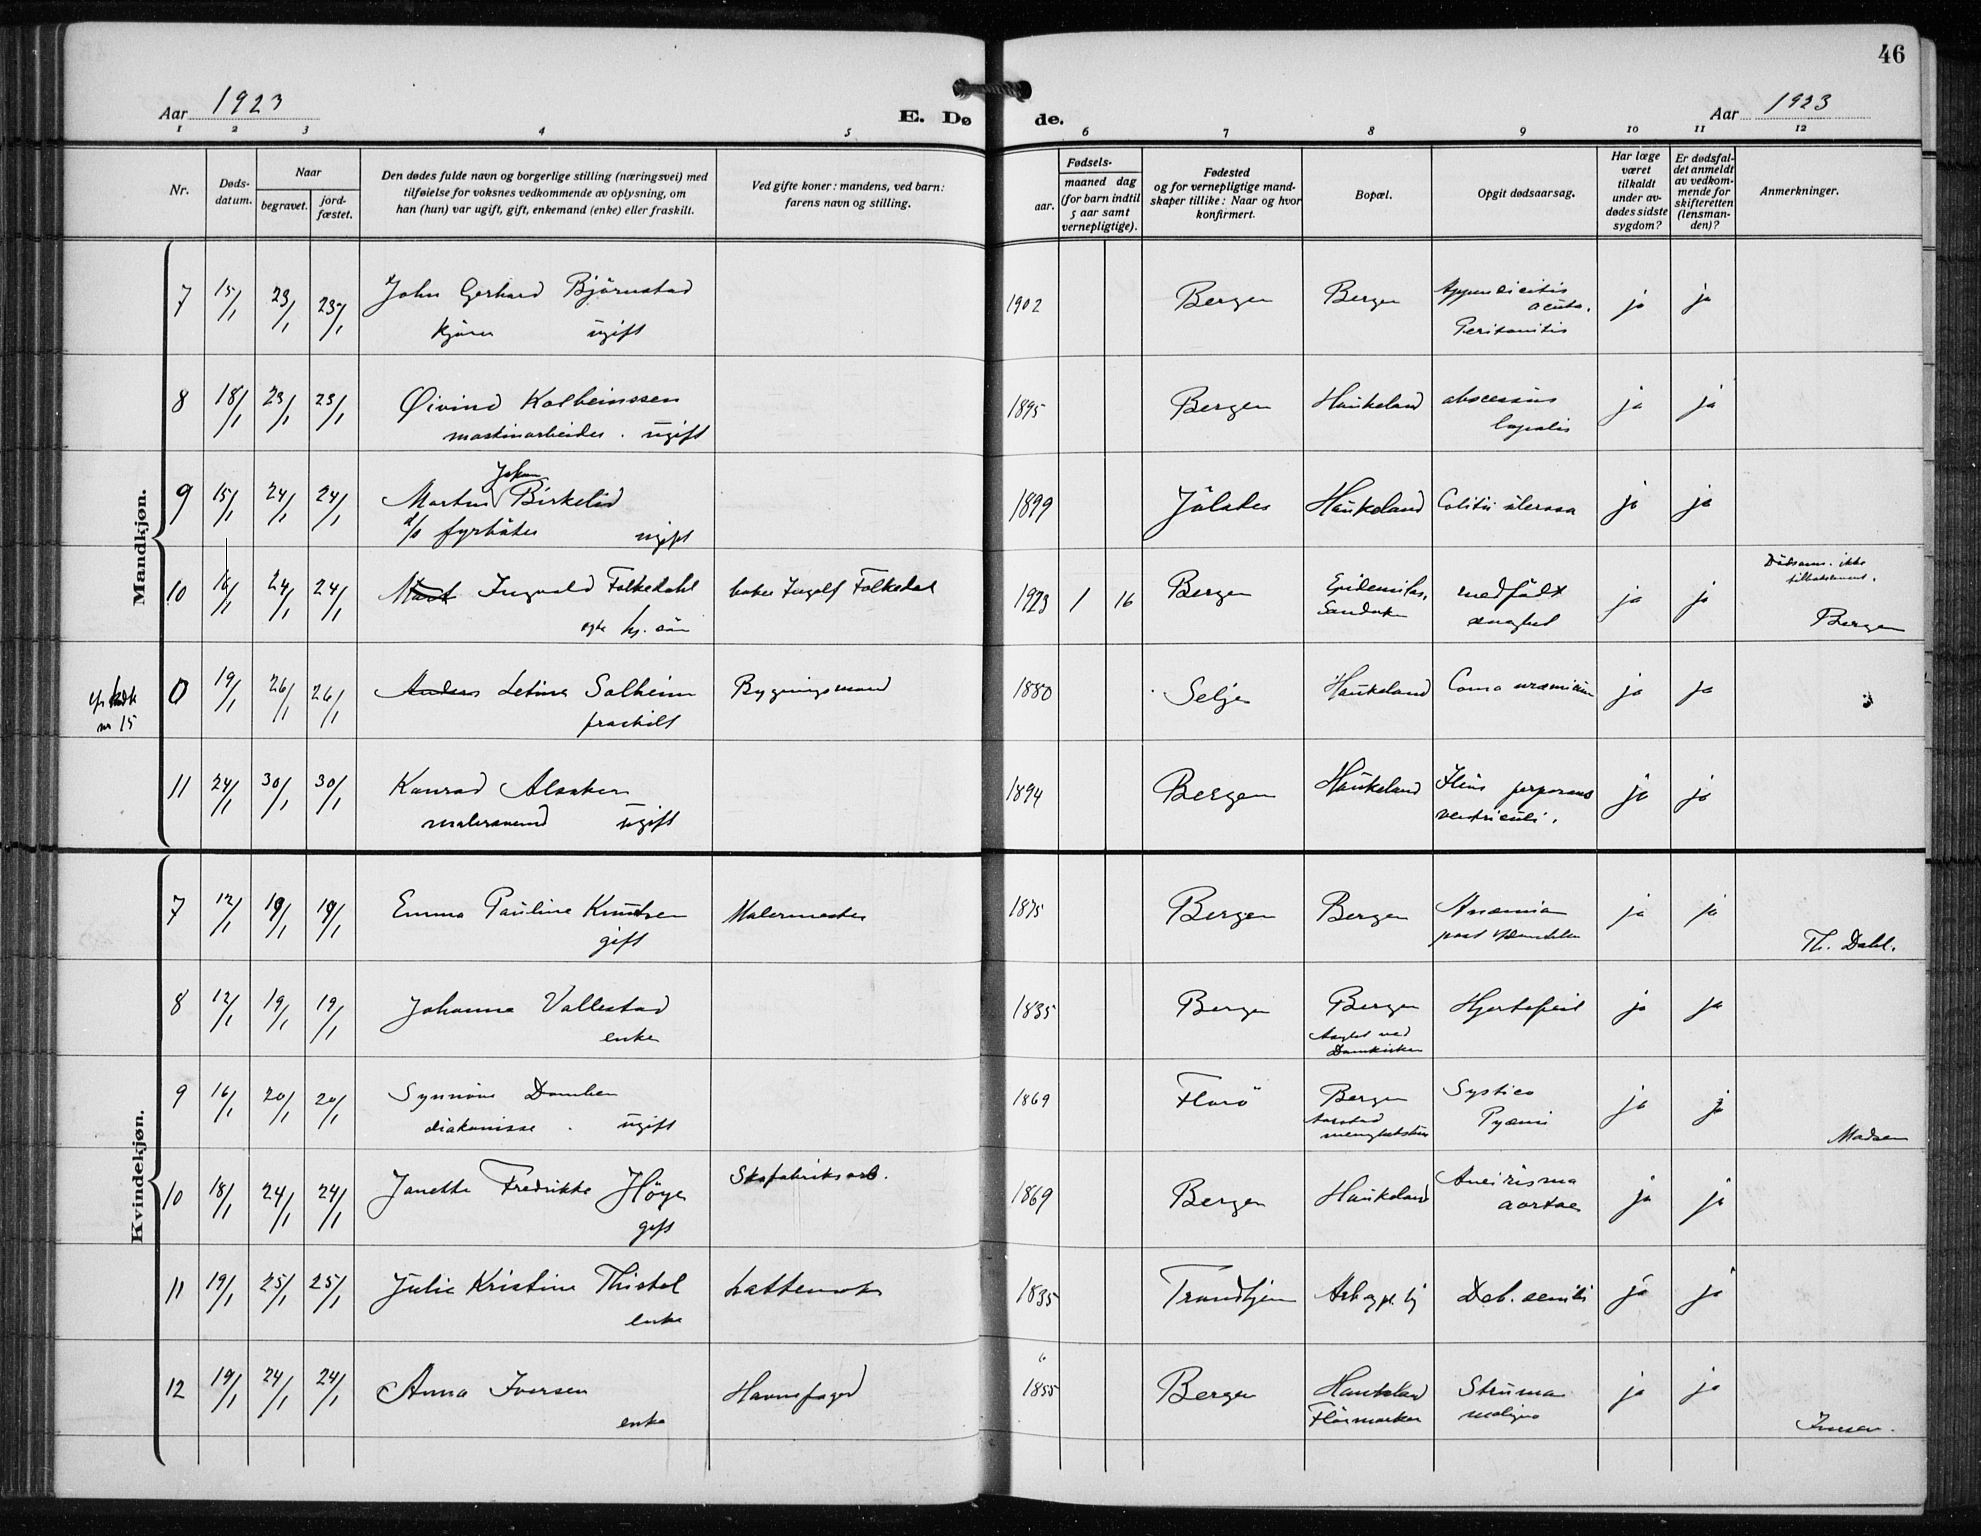 46
Aar 1923
E. Dø
de.
Aar 1923
1 2 3 4 5
6 7 8 9 10 11 12
Nr.
Døds-
datum.
Naar
begravet.
jord-
fæstet.
Den dødes fulde navn og borgerlige stilling (næringsvei) med
tilføielse for voksnes vedkommende av oplysning, om
han (hun) var ugift, gift, enkemand (enke) eller fraskilt.
Ved gifte koner: mandens, ved barn:
farens navn og stilling.
Fødsels-
aar.
maaned dag
(for barn indtil
5 aar samt
vernepligtige).
Fødested
og for vernepligtige mand-
skaper tillike: Naar og hvor
konfirmert.
Bopæl.
Opgit dødsaarsag.
Har læge
været
tilkaldt
under av-
dødes sidste
sygdom?
Er dødsfal-
det anmeldt
av vedkom-
mende for
skifteretten
(lensman-
den)?
Anmerkninger.
Mandkjøn.
7 15/1 23/1 23/1 John Gerhard Björnstad 1902 Bergen Bergen Appendicitis
acuta.
kjører ugift Peritonitis ja ja
8 18/1 23/1 23/1 Øivind Kolbeinssen 1895 Bergen Haukeland abscessus
maskinarbeider. ugift ja ja
John
9 15/1 24/1 24/1 Martin Birkelid 1899 Jölster Haukeland Colitis ulerosa ja ja
d/s fyrbøter ugift
10 16/1 24/1 24/1 Ingvald Folkedahl Ingolf Folkedal 1923 1 16 Bergen Epidemilas. medfødt ja ja
Sandviken svaghet
egte hj. søn
Dødsanm. ikke
Bergen
nr 15
0 19/1 26/1 26/1 Anders Letine Solheim Bygningsmand 1880 Selje Haukeland Coma uræmicum ja ja
fraskilt
11 24/1 30/1 30/1 Konrad Alsaker 1894 Bergen Haukeland Ulcus perforans ja ja
malersvend ugift ventriculi.
Kvindekjøn.
7 12/1 19/1 19/1 Emma Pauline Knutsen Malermester 1875 Bergen Bergen Anæmia ja ja
gift post
Th. Dahl.
8 12/1 19/1 19/1 Johanna Vallestad 1835 Bergen Bergen Hjertefeil ja ja
enke Asylet ved
Domkirken
9 16/1 20/1 20/1 Synnöve Domben 1869 Florö Bergen Pyæmi ja ja
diakonisse. ugift Aarstad
menighetshus
Madsen
10 18/1 24/1 24/1 Janette Fredrikke Høye Skofabriksarb. 1869 Bergen Haukeland Aneirisma ja ja
gift aortae
11 19/1 25/1 25/1 Julie Kristine Thistel 1835 Trondhjem Deb. senilis ja ja
enke
12 19/1 24/1 24/1 Anna Iversen Havnefoged 1855 Bergen Haukeland Struma ja ja
enke maligna
Iversen.